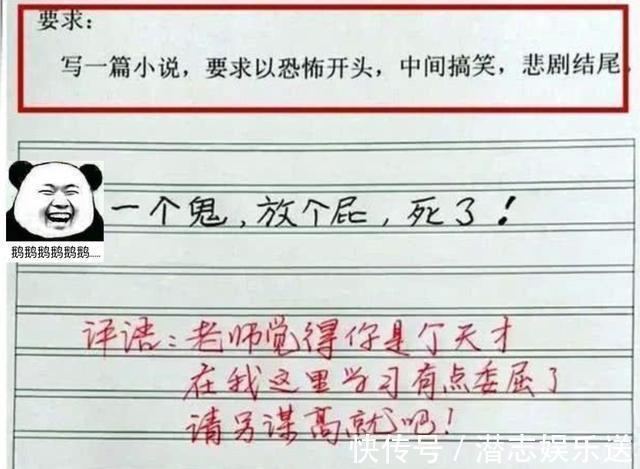 要求:
写一篇小说，要求以恐怖开头，中间搞笑，悲剧结尾，
一个鬼，放个屁，死了！
鹅鹅鹅鹅鹅鹅.....
评语：老师觉得你是个天才
在我这里学习有点委屈了
请另谋高就吧！
快传号 / 潜志娱乐送